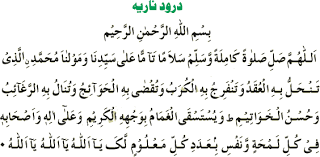 درود ناریه
بِسْمِ اللّٰهِ الرَّحْمٰنِ الرَّحِيْمِ
اَللّٰهُمَّ صَلِّ صَلٰوةً كَامِلَةً وَّسَلِّمْ سَلَامًا تَامًّا عَلٰى سَيِّدِنَا وَمَوْلٰنَا مُحَمَّدِ ۨالَّذِىْ
تَنْحَلُّ بِهِ الْعُقَدُ وَتَنْفَرِجُ بِهِ الْكُرَبُ وَتُقْضٰى بِهِ الْحَوَآئِجُ وَتُنَالُ بِهِ الرَّغَآئِبُ
وَحُسْنُ الْخَوَاتِيْمِ ط وَيُسْتَسْقَى الْغَمَامُ بِوَجْهِهِ الْكَرِيْمِ وَعَلٰٓى اٰلِهٖ وَاَصْحَابِهٖ
فِىْ كُلِّ لَمْحَةٍ وَّنَفَسٍ بِعَدَدِ كُلِّ مَعْلُوْمٍ لَّكَ يَآ اَللّٰهُ يَآ اَللّٰهُ يَآ اَللّٰهُ ۰